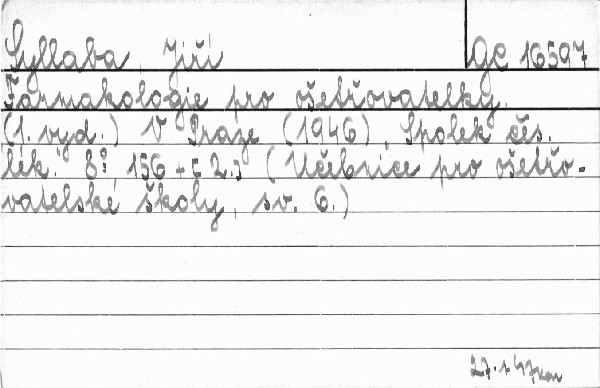 Syllaba Jiří GC 16597
Farmakologie pro ošetřovatelky.
(1. vyd.) V Praze (1946), Spolek čes.
lék. 8°, 156 + [2.] (Učebnice pro ošetřo-
vatelské školy, sv. 6.)